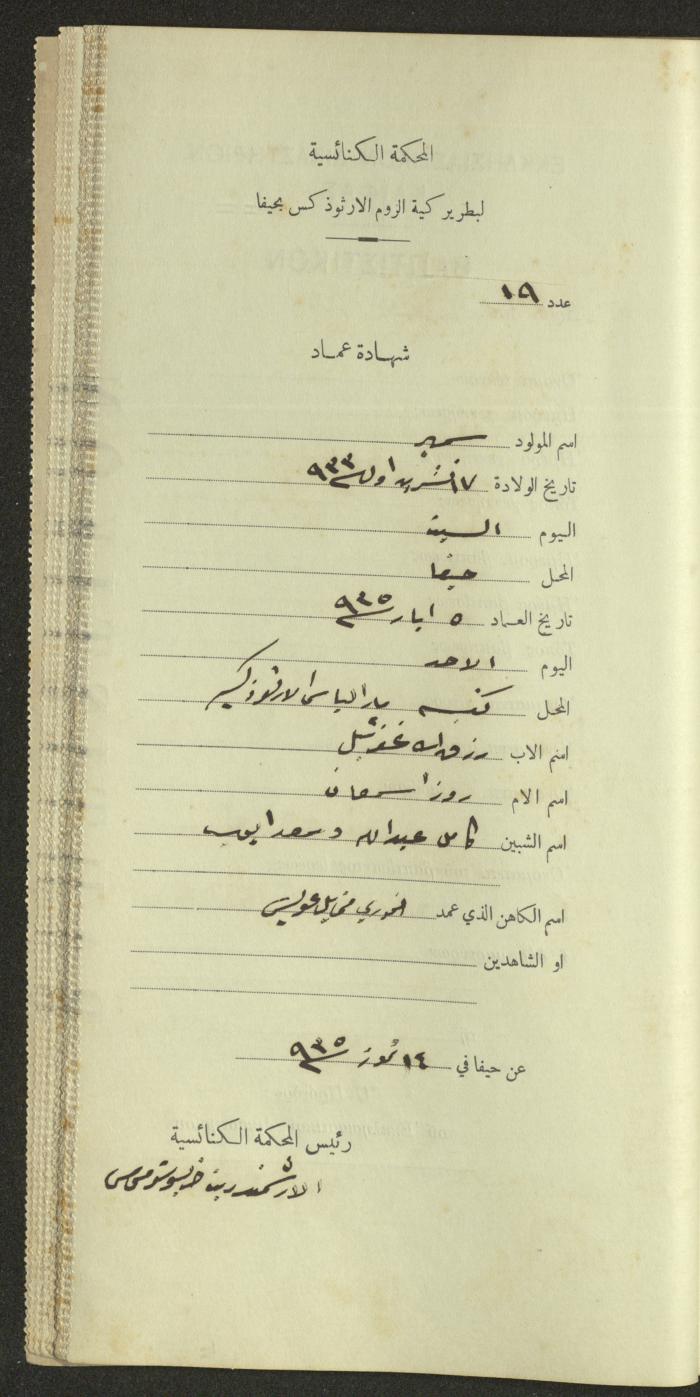 المحكمة الكنائسية
لبطريركية الروم الارثوذكس بحيفا
عدد ١٩
شهادة عماد
اسم المولود سمير
تاريخ الولادة ١٧ تشرين اول ٩٣٣
اليوم السبت
المحل حيفا
تاريخ العماد ٥ ايار ٩٣٥
اليوم الاحد
المحل كنيسة مار الياس الارثوذكسية
اسم الاب رزق الله
اسم الام روزا سمعان
اسم الشبين كامل عبدالله وسعدا ايوب
اسم الكاهن الذي عمد الخوري ميخايل عويس
او الشاهدين
عن حيفا في ١٤ تموز ٩٣٥
رئيس المحكمة الكنائسية
الارشمندريت خريسوستوموس